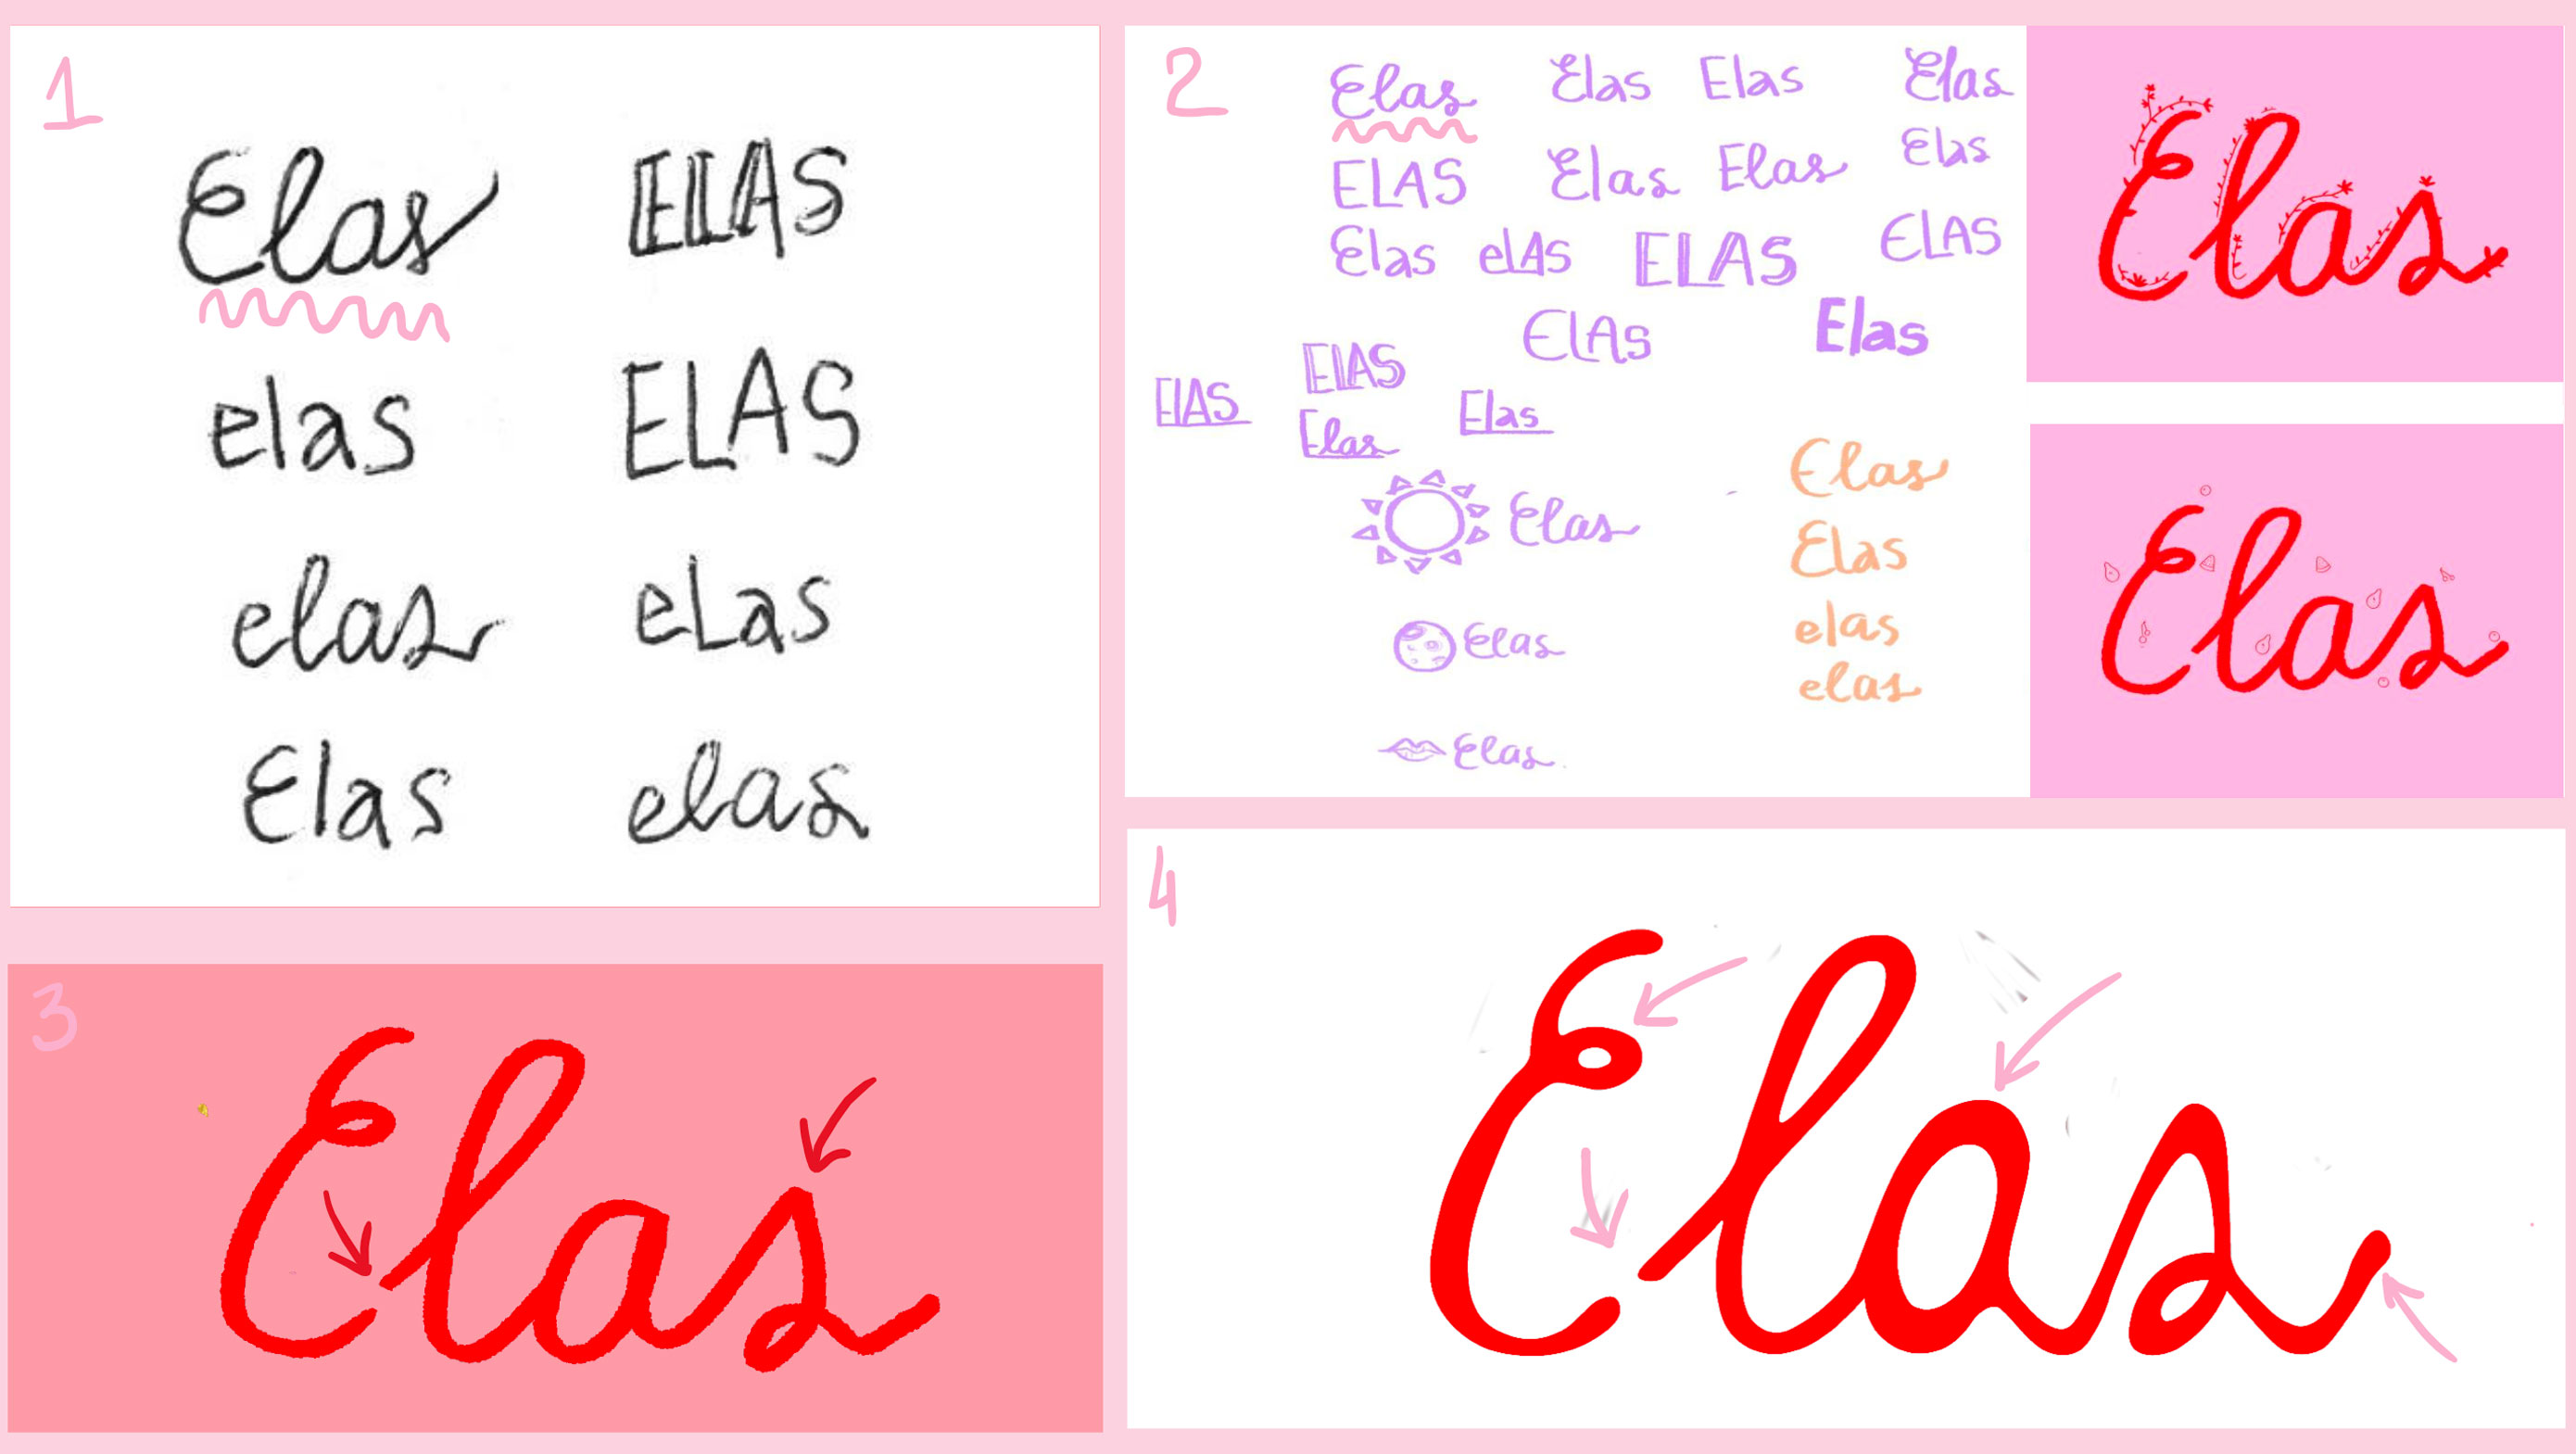 1
Elas ELAS
elas ELAS
elas eLas
Elas elas
2
Elas Elas Elas Elas
ELAS Elas Elas Elas
Elas elAs ELAS ELAS
ElAs Elas
ElAS ElAS
Elas Elas
Elas Elas
Elas Elas
Elas elas
elas
Elas
Elas
Elas
3
Elas
4
Elas